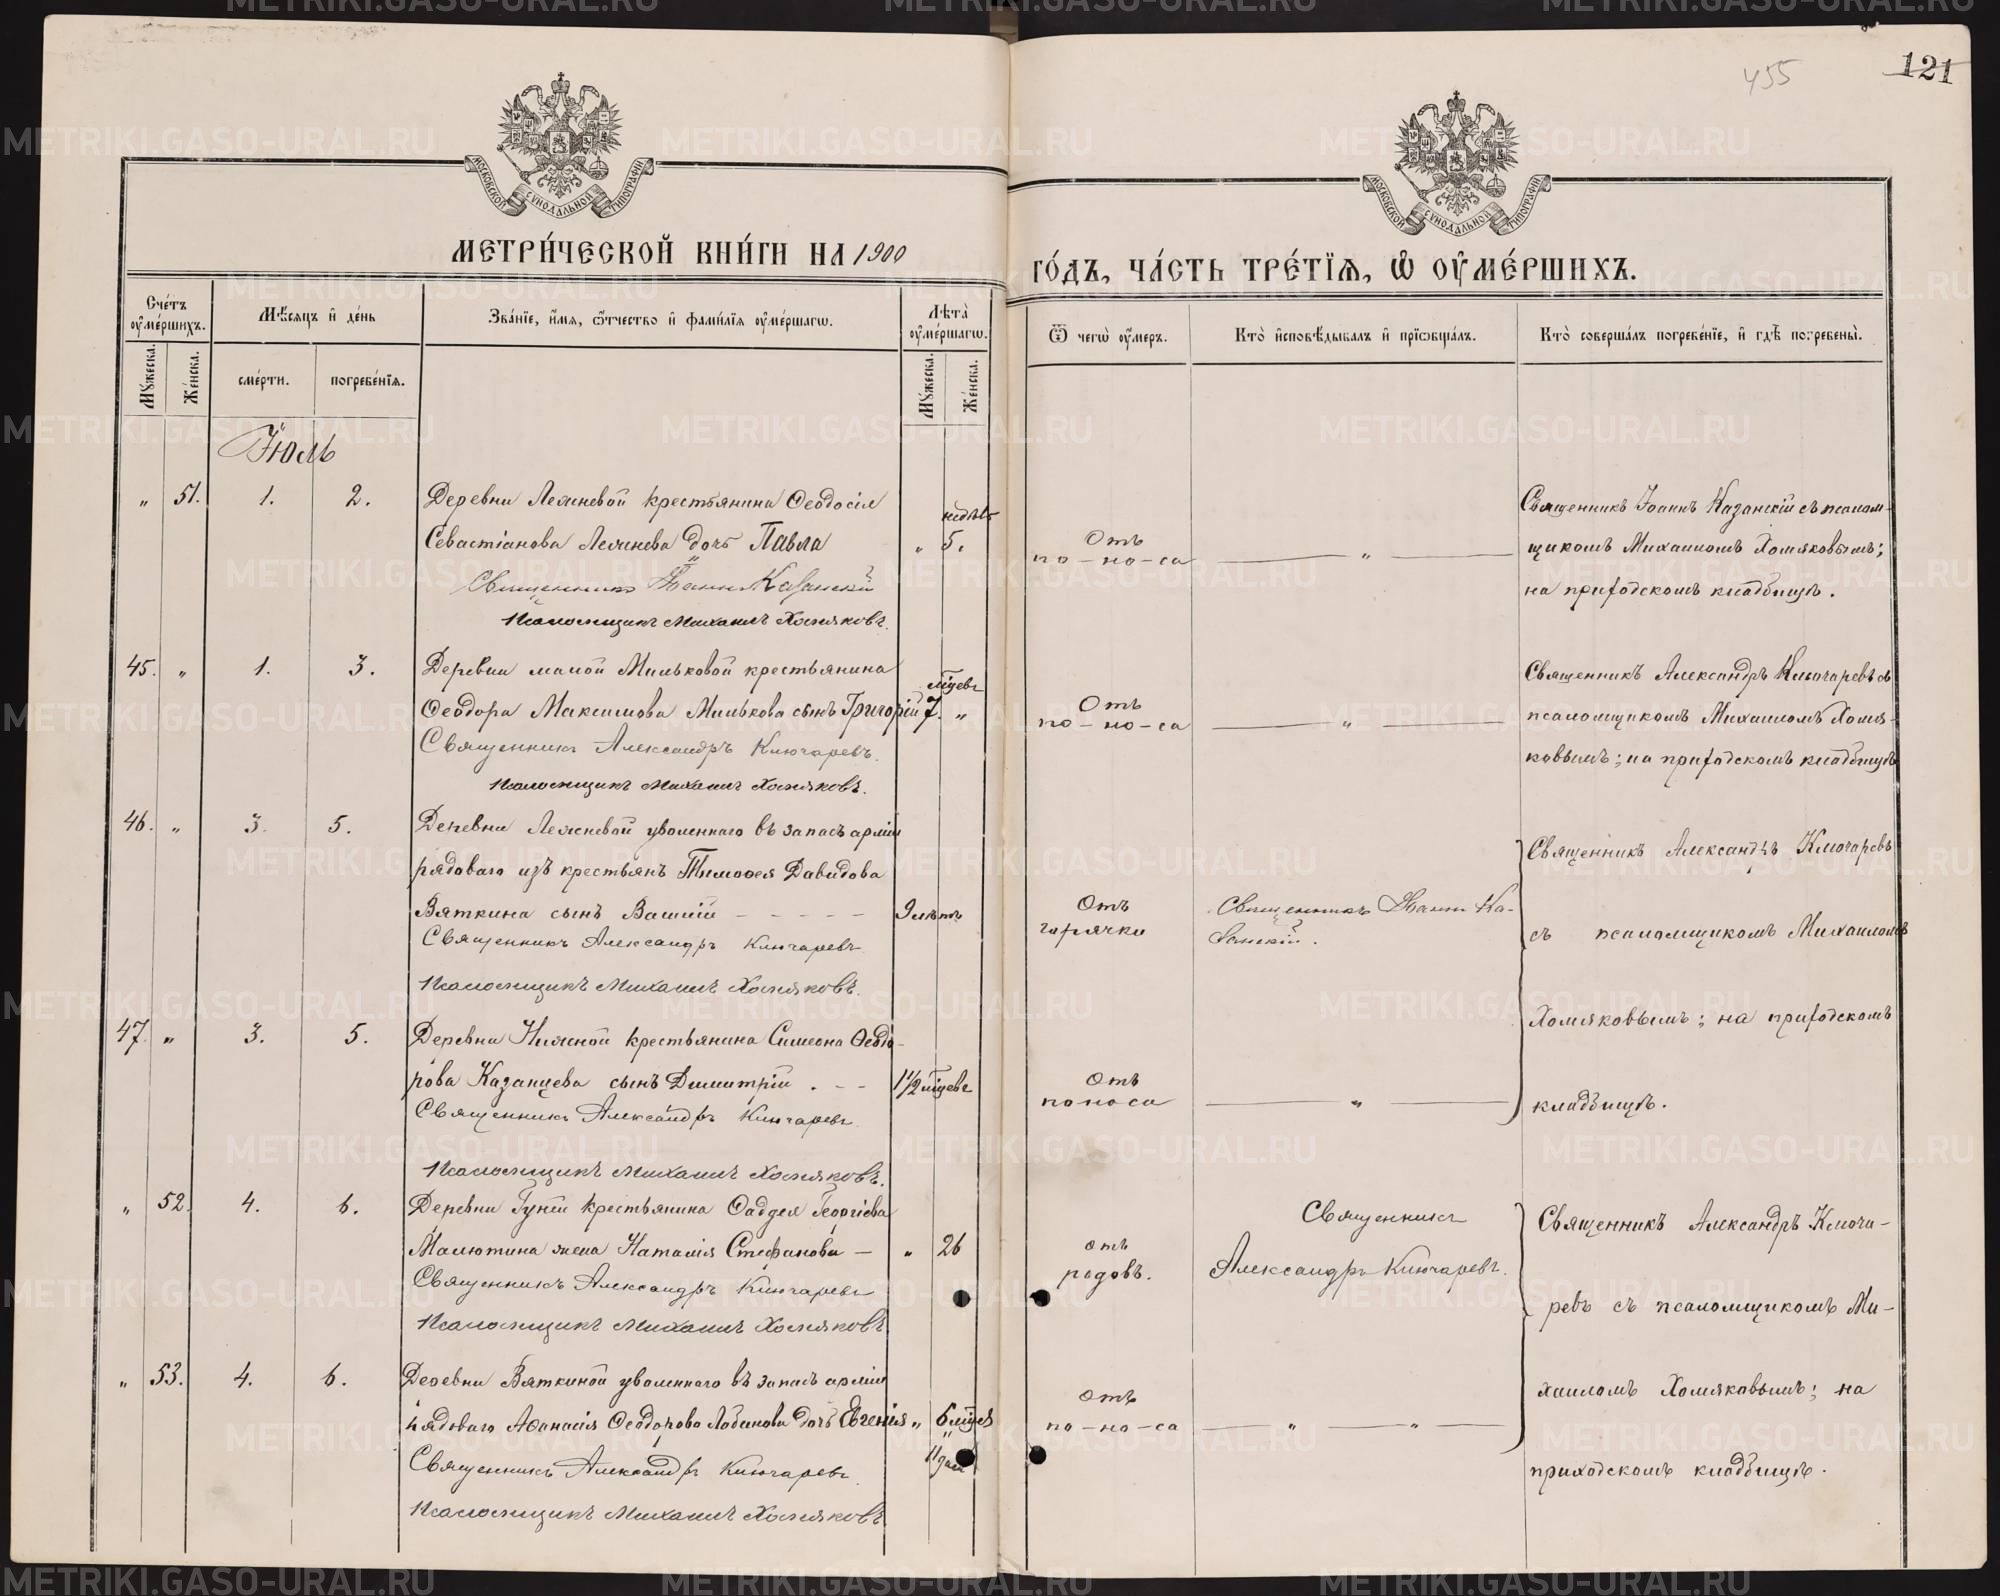 455
121
МОСКОВСКОЙ СѴНОДАЛЬНОЙ ТИПОГРАФІИ
МОСКОВСКОЙ СѴНОДАЛЬНОЙ ТИПОГРАФІИ
МЕТРИ́ЧЕСКОЙ КНИ́ГИ НА 1900
ГО́ДЪ, ЧА́СТЬ ТРЕ́ТІѦ, Ѽ ОУ҆МЕ́РШИХЪ.
Сче́тъ оу҆ме́ршихъ.
Мꙋ́жеска.
Же́нска.
Мѣ́сѧцъ и҆ де́нь
сме́рти.
погребе́нїѧ.
Зва́нїе, и҆́мѧ, ѻ҆́тчество и҆ фами́лїѧ оу҆ме́ршагѡ.
Лѣ́та оу҆ме́ршагѡ.
Мꙋ́жеска.
Же́нска.
Ѿ чегѡ̀ оу҆́меръ.
Кто̀ и҆сповѣ́дывалъ и҆ прїѡбща́лъ.
Кто̀ соверша́лъ погребе́нїе, и҆ гдѣ̀ погребены̀.
Іюль
„ 51. 1. 2. Деревни Лежневой крестьянина Ѳеодосія
Севастіанова Лежнева дочь Павла „ недѣль 5.
Священникъ Іоаннъ Казанскій
Псаломщикъ Михаилъ Хомяковъ.
Отъ
по-но-са
„
Священникъ Іоаннъ Казанскій съ псалом-
щикомъ Михаиломъ Хомяковымъ;
на приходскомъ кладбищѣ.
45. „ 1. 3. Деревни малой Мильковой крестьянина
Ѳеодора Максимова Милькова сынъ Григорій мѣсяцевъ 7. „
Священникъ Александръ Ключаревъ.
Псаломщикъ Михаилъ Хомяковъ.
Отъ
по-но-са
„
Священникъ Александръ Ключаревъ съ
псаломщикомъ Михаиломъ Хомя-
ковымъ; на приходскомъ кладбищѣ
46. „ 3. 5. Деревни Лежневой уволеннаго въ запасъ арміи
рядоваго изъ крестьянъ Тимоѳея Давидова
Вяткина сынъ Василій - - - - - 9 лѣтъ
Священникъ Александръ Ключаревъ
Псаломщикъ Михаилъ Хомяковъ.
Отъ
горячки
Священникъ Іоаннъ Ка-
занскій.
Священникъ Александръ Ключаревъ
съ псаломщикомъ Михаиломъ
Хомяковымъ; на приходскомъ
кладбищѣ.
47. „ 3. 5. Деревни Нижной крестьянина Симеона Ѳеодо-
рова Казанцева сынъ Димитрій . - - 1 1/2 мѣсяцевъ
Священникъ Александръ Ключаревъ.
Псаломщикъ Михаилъ Хомяковъ.
Отъ
поноса
„
„ 52. 4. 6. Деревни Гуни крестьянина Ѳаддея Георгіева
Малютина жена Наталія Стефанова — „ 26
Священникъ Александръ Ключаревъ
Псаломщикъ Михаилъ Хомяковъ
отъ
родовъ.
Священникъ
Александръ Ключаревъ.
Священникъ Александръ Ключа-
ревъ съ псаломщикомъ Ми-
хаиломъ Хомяковымъ; на
приходскомъ кладбищѣ.
„ 53. 4. 6. Деревни Вяткиной уволеннаго въ запасъ арміи
рядоваго Аѳанасія Ѳеодорова Лобанова дочь Евгенія „ 6 мѣсяц.
11 дней
Священникъ Александръ Ключаревъ.
Псаломщикъ Михаилъ Хомяковъ
отъ
по-но-са
„ „
METRIKI.GASO-URAL.RU